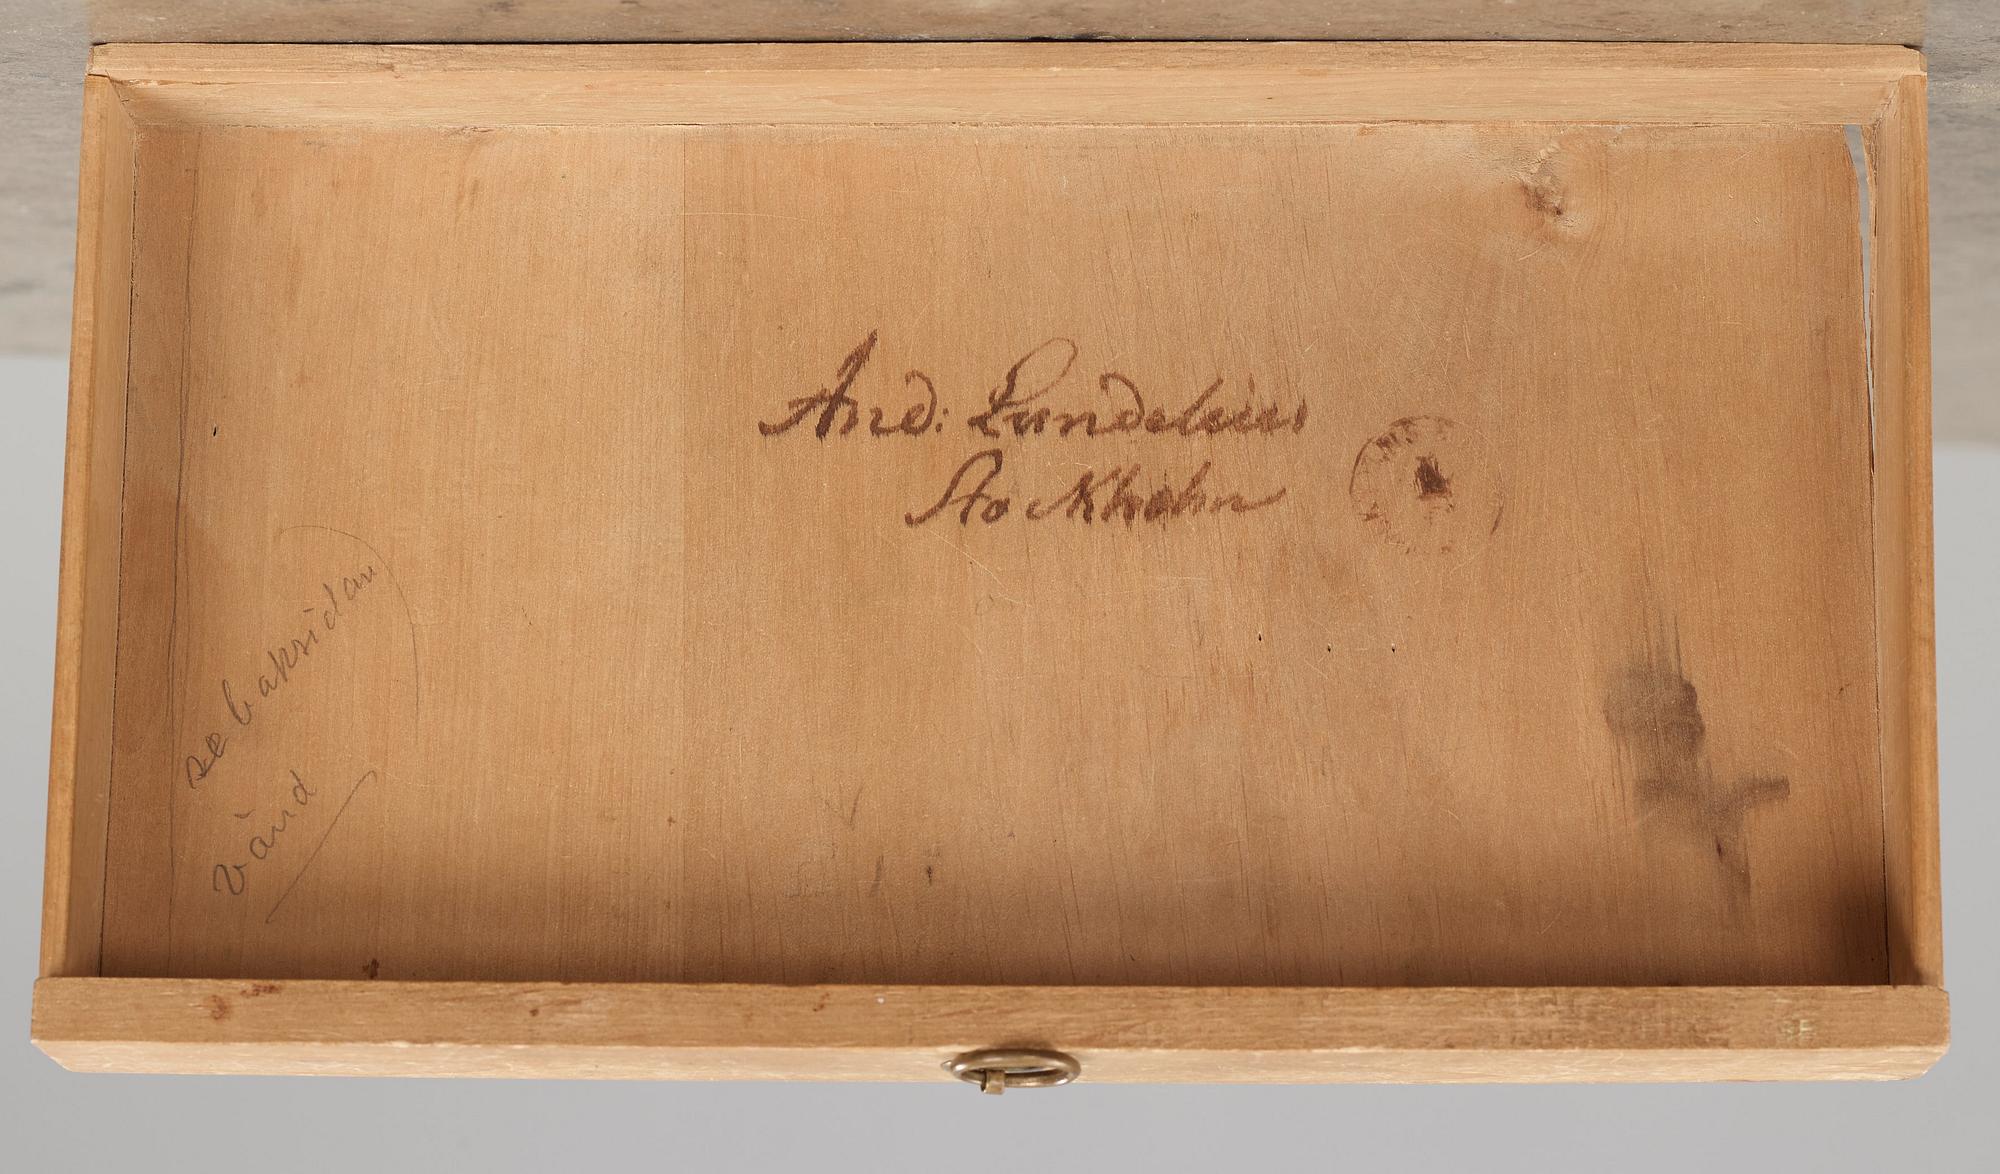 And: Lundelius
Stockholm
se baksidan
vänd